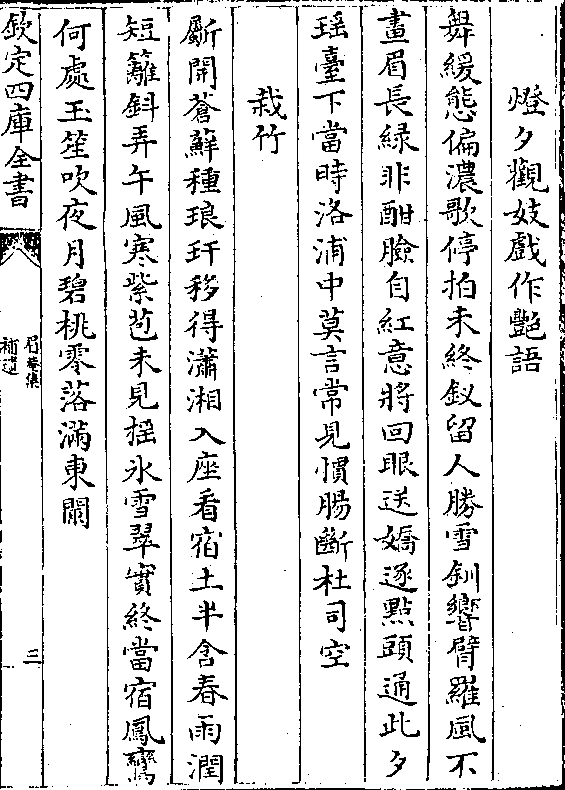 燈夕觀妓戲作艷語
舞緩態偏濃歌停拍未終釵留人勝雪釧響臂羅風不
畫眉長緑非酣臉自紅意將回眼送嬌逐點頭通此夕
瑶臺下當時洛浦中莫言常見慣腸斷杜司空
栽竹
斸開蒼蘚種琅玕移得瀟湘入座看宿土半含春雨潤
短籬斜弄午風寒紫苞未見揺氷雪翠實終當宿鳳鸞
何處玉笙吹夜月碧桃零落滿東闌
欽定四庫全書
眉菴集
補遺
三